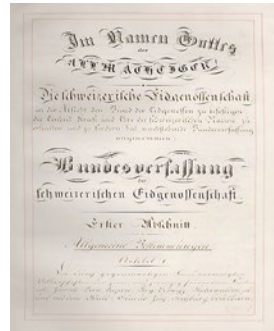 Im Namen Gottes
des
ALLMÄCHTIGEN!
Die schweizerische Eidgenossenschaft
in der Absicht, den Bund der Eidgenossen zu befestigen,
die Einheit, Kraft und Ehre der schweizerischen Nation zu
erhalten und zu fördern, hat nachstehende Bundesverfassung
angenommen:
Bundesverfassung
der
schweizerischen Eidgenossenschaft.
Erster Abschnitt.
Allgemeine Bestimmungen.
Artikel 1